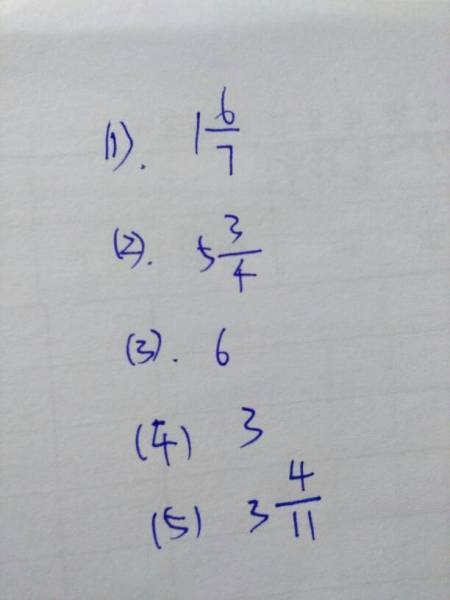 (1). 1 6/7
(2). 5 3/4
(3). 6
(4) 3
(5) 3 4/11